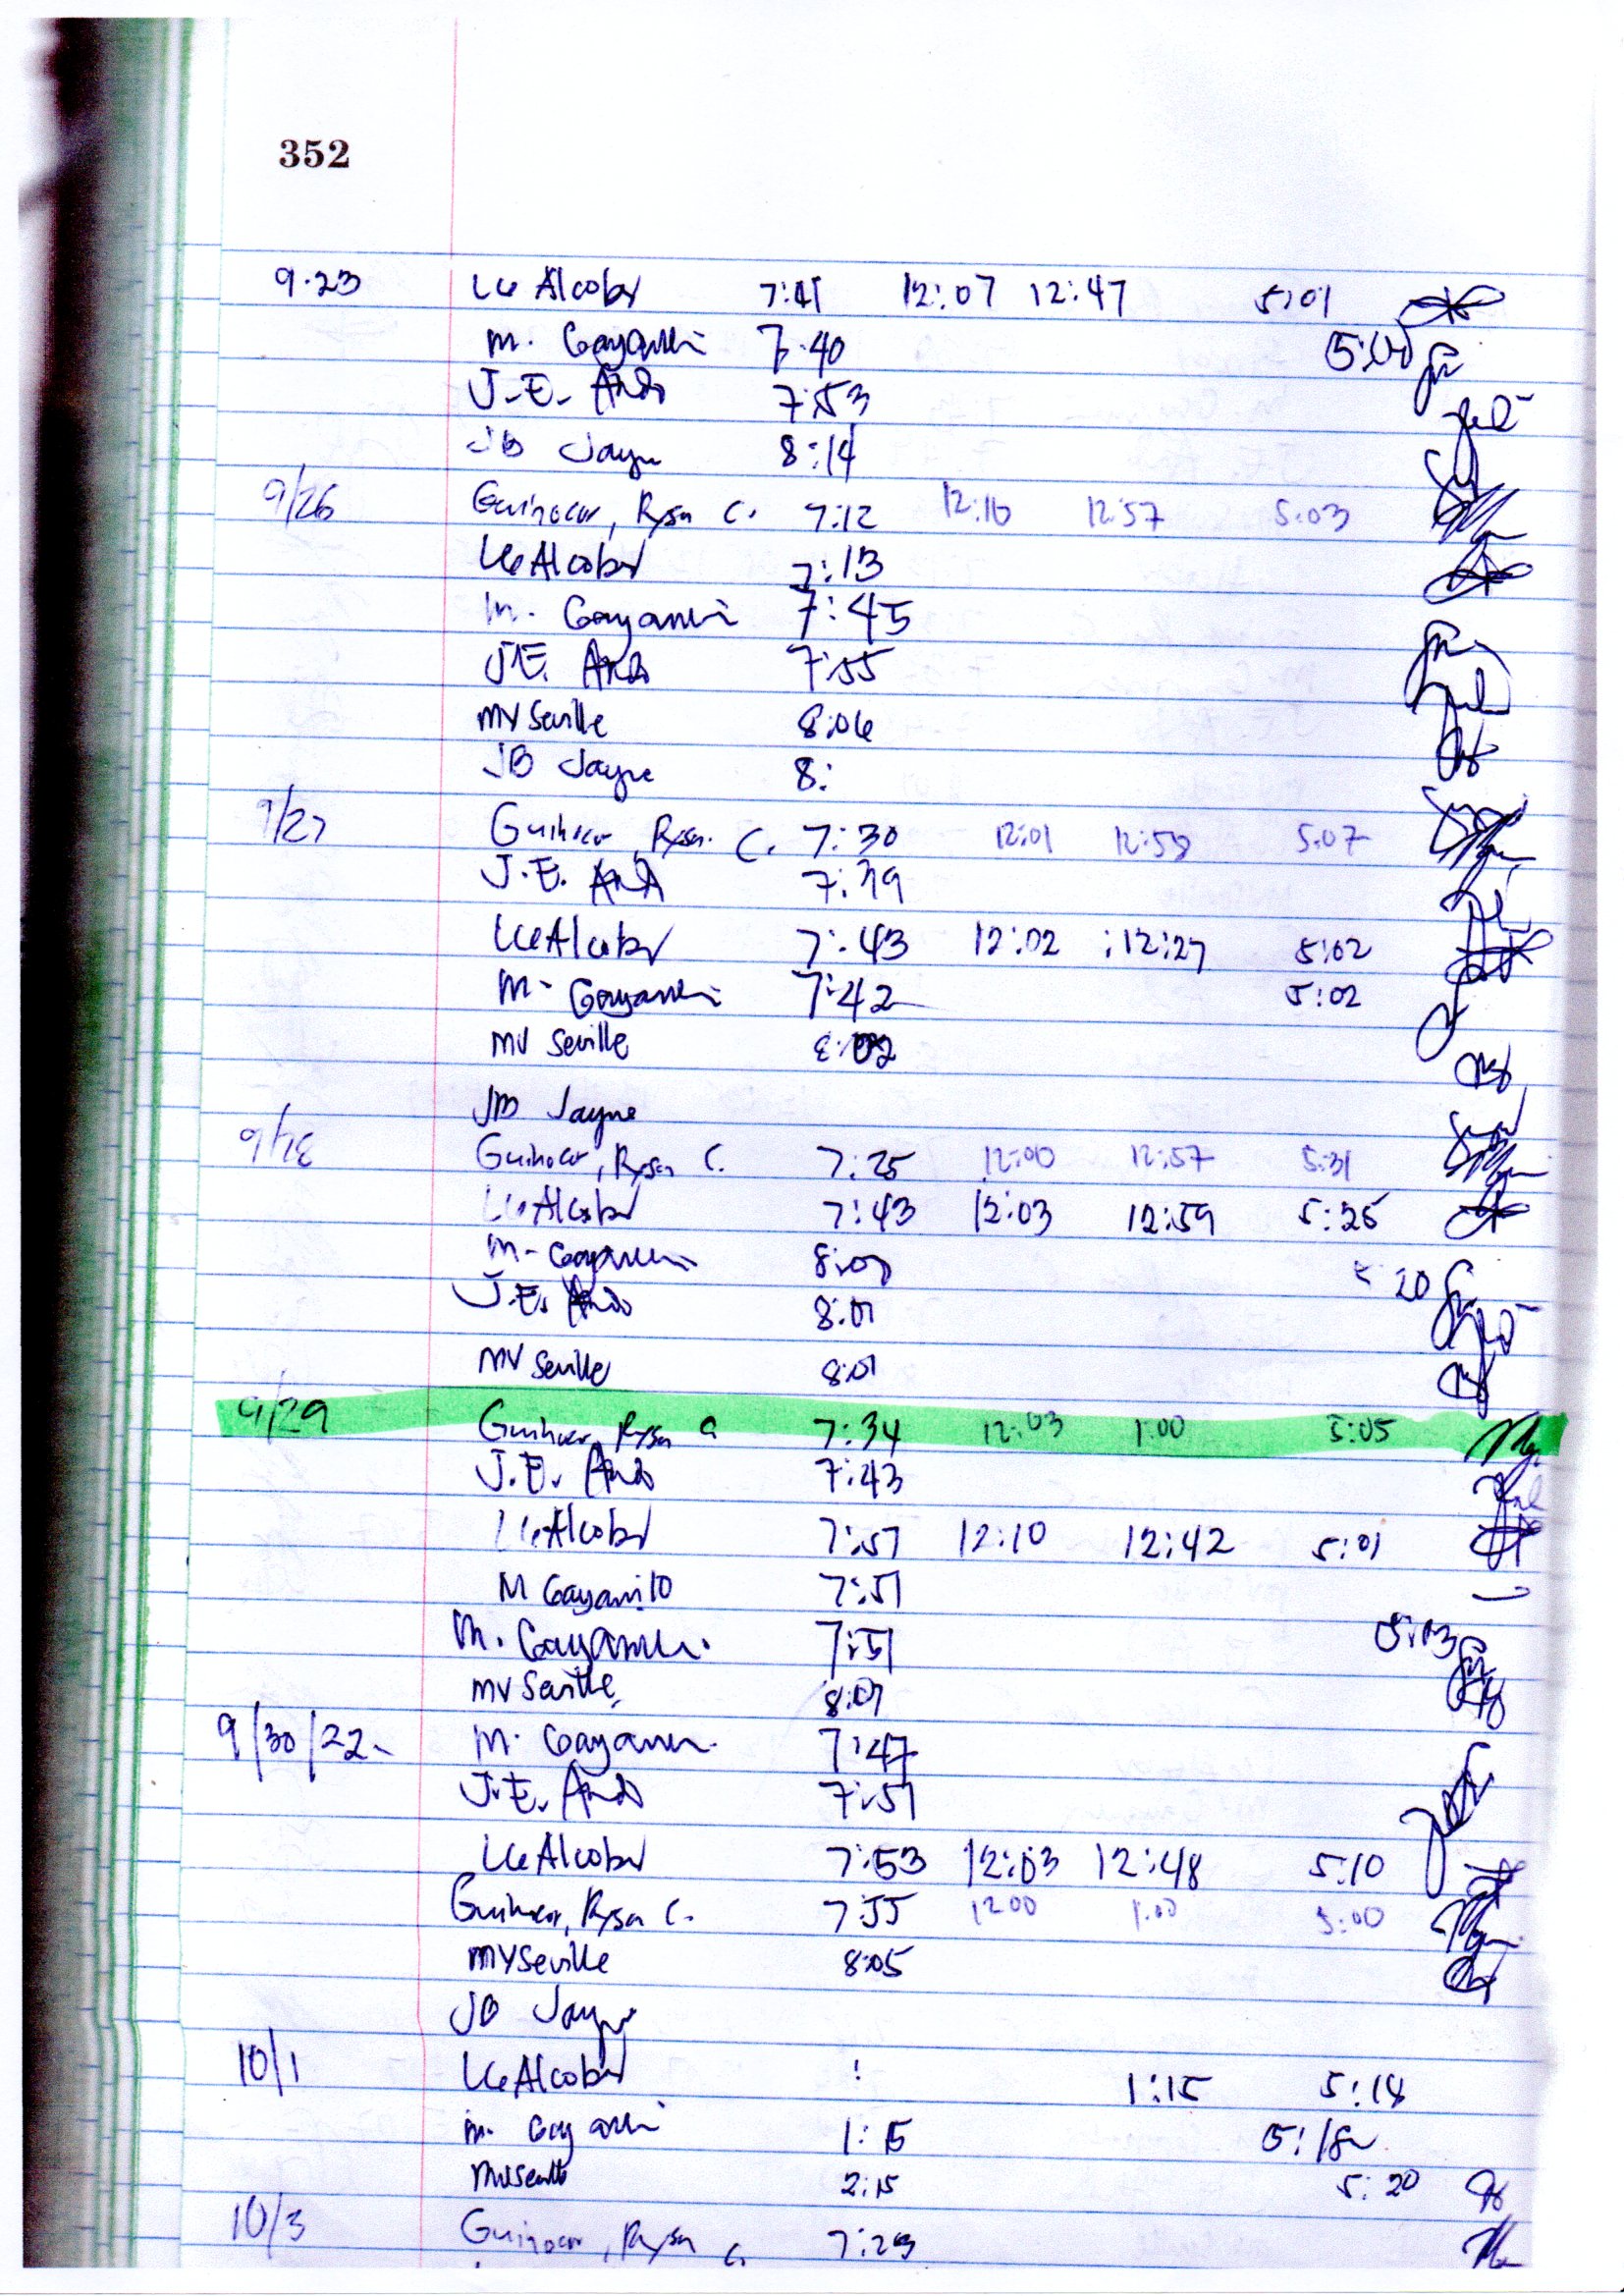 352
9.23 LG Alcober 7:41 12:07 12:47 5:01
M. Gayanilo 7:40 5:00
J.E. Ando 7:53
JB Jayne 8:14
9/26 Guinocor, Rysa C. 7:12 12:10 12:57 5:03
LG Alcober 7:13
M. Gayanilo 7:45
J.E. Ando 7:55
MV Seville 8:06
JB Jayne 8:
9/27 Guinocor, Rysa C. 7:30 12:01 12:58 5:07
J.E. Ando 7:39
LG Alcober 7:43 12:02 :12:27 5:02
M. Gayanilo 7:42 5:02
MV Seville 8:02
JB Jayne
9/28 Guinocor, Rysa C. 7:25 12:00 12:57 5:31
LG Alcober 7:43 12:03 12:59 5:25
M. Gayanilo 8:00 5 20
J.E. Ando 8:01
MV Seville 8:01
9/29 Guinocor, Rysa C 7:34 12:03 1:00 5:05
J.E. Ando 7:43
LG Alcober 7:57 12:10 12:42 5:01
M Gayanilo 7:51
M. Gayanilo. 7:51 5:03
MV Seville 8:01
9/30/22 M. Gayanilo 7:47
J.E. Ando 7:51
LG Alcober 7:53 12:03 12:48 5:10
Guinocor, Rysa C. 7:55 12:00 1:00 5:00
MV Seville 8:05
JB Jayne
10/1 LG Alcober : 1:15 5:14
M. Gayanilo 1:15 5:18
MV Seville 2:15 5:20
10/3 Guinocor, Rysa C. 7:29